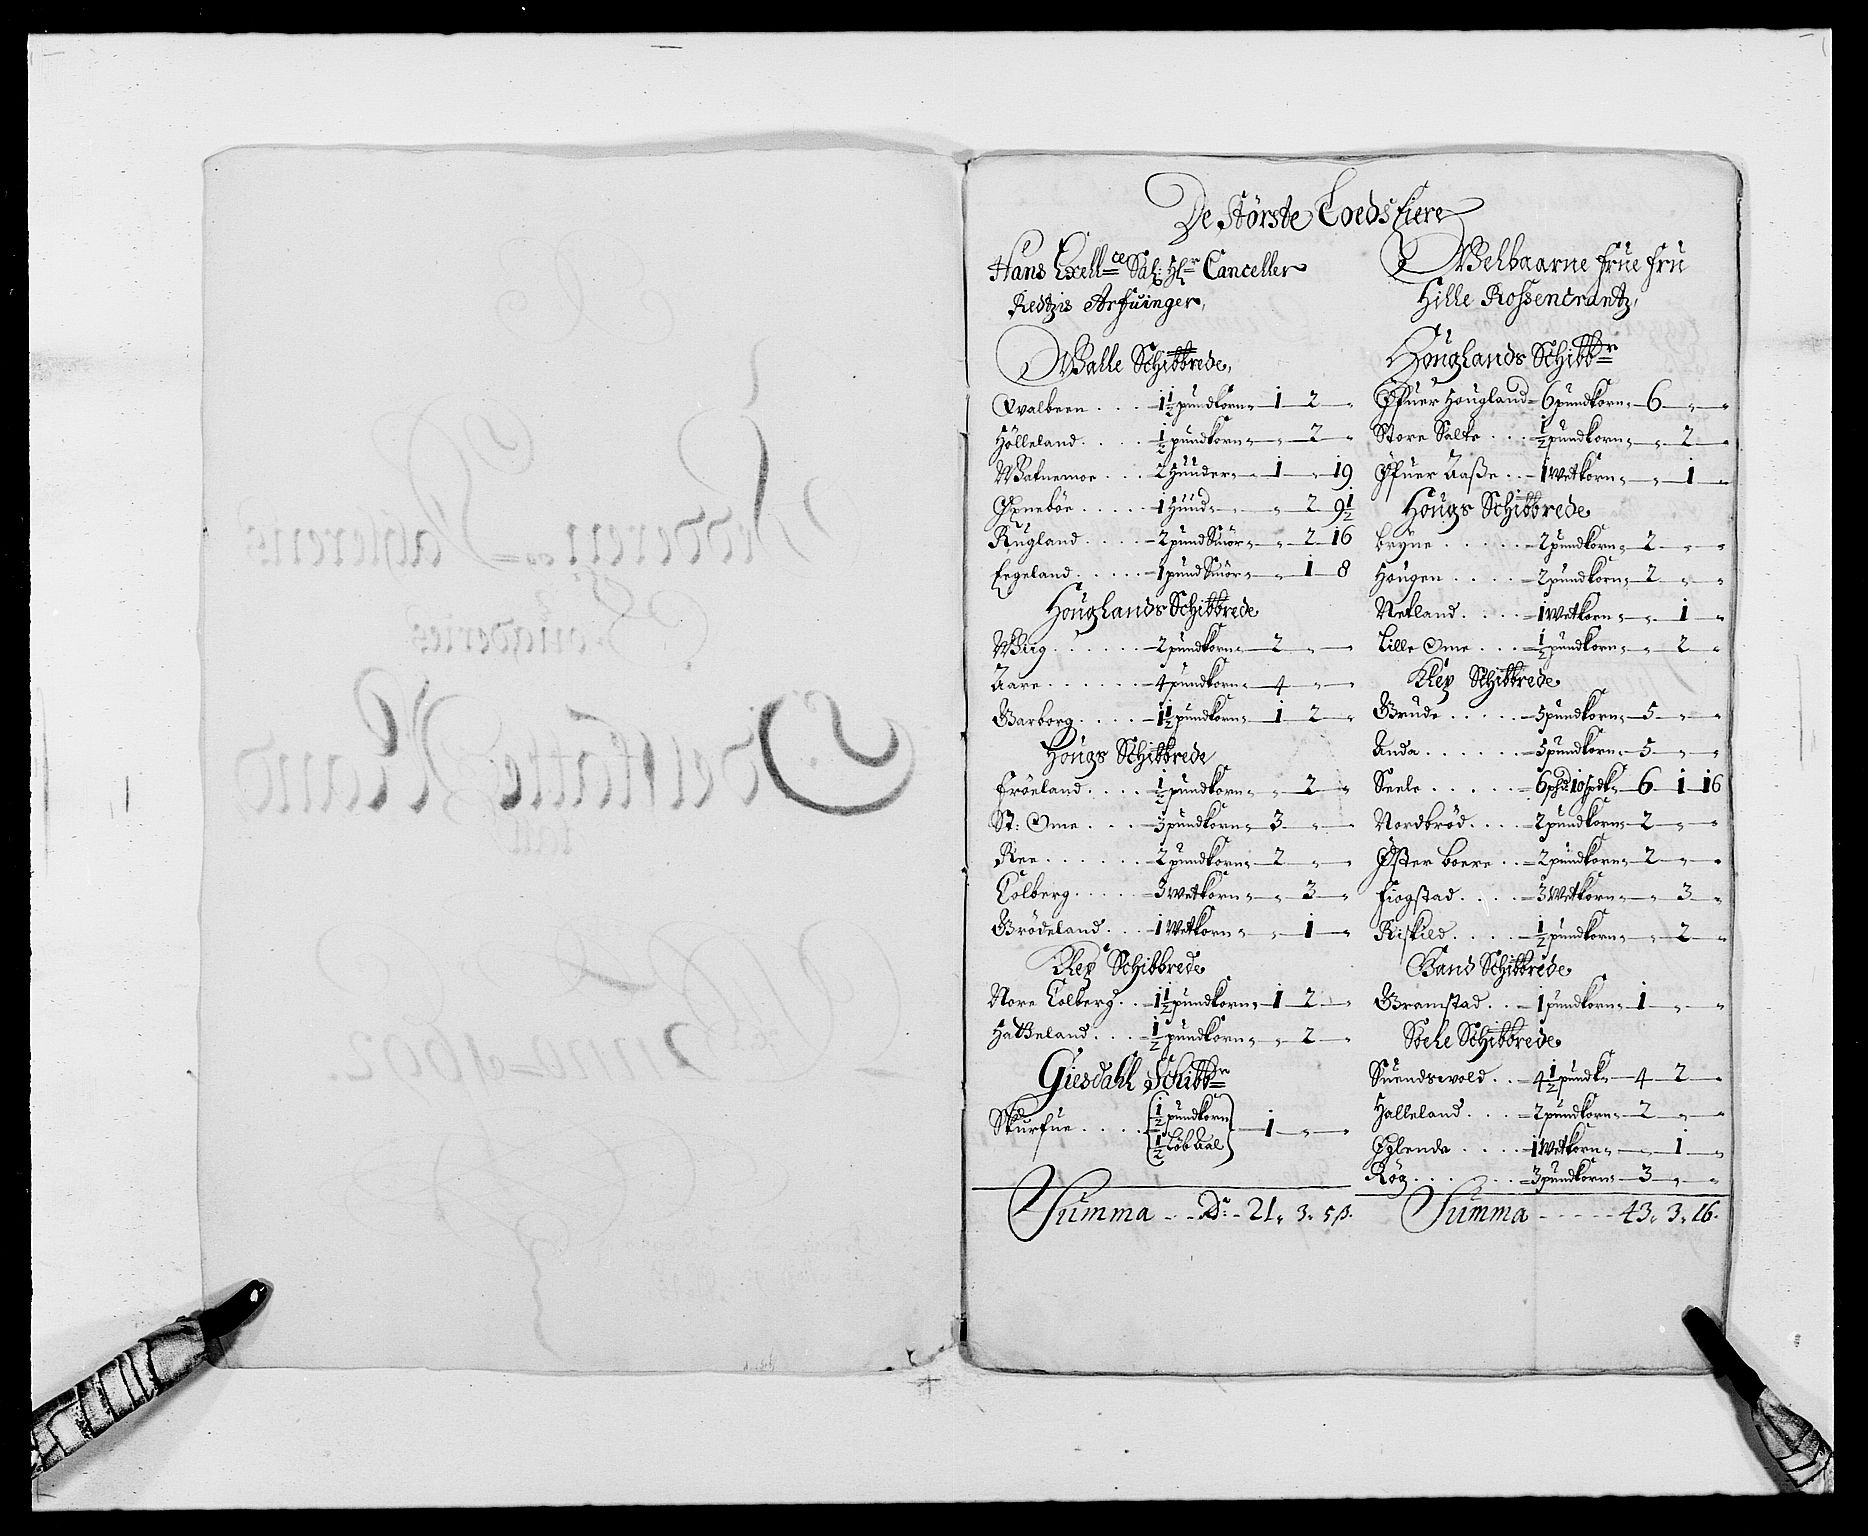 De störste Loeds Eiere
Hans Excell.ce Sal: Hr Canceller
Redtzis Arfuinger,
Walle Schibbrede,
Qvalbeen . . . . 1½ pundkorn 1 2 „
Hölleland . . . . ½ pundkorn „ 2 „
Watnemoe . . . 2 Huuder 1 „ 19
Opneböe . . . . . 1 Huud „ 2 9½
Rugland . . . . . 2 pund Smör „ 2 16
Eegeland . . . . . 1 pund Smör „ 1 8
Houglands Schibbrede
Wiig . . . . . . 2 pundkorn 2 „ „
Aare . . . . . . 4 pundkorn 4 „ „
Warborg . . . . 1½ pundkorn 1 2 „
Hougs Schibbrede
Fröeland . . . . ½ pundkorn „ 2 „
St: Ome . . . . 3 pundkorn 3 „ „
Ree . . . . . . 2 pundkorn 2 „ „
Tolberg . . . . . 3 wetkorn „ 3 „
Grödeland . . . 1 wetkorn „ 1 „
Klep Schibbrede
Nore Tolberg . . 1½ pundkorn 1 2 „
Hatteland . . . ½ pundkorn „ 2 „
Giesdahl Schibbr
Skurfue . . . . ½ pundkorn 1 „ „
½ Löb tal
Summa . . . Dr: 21„ 3„ 5ß.
Welbaarne Frue Fru
Hille Rossencrantz,
Houglands Schibbr
Öfuer Hougland 6 pundkorn 6 „ „
Store Salte . . . ½ pundkorn „ 2 „
Öfuer Aaße . . 1 wetkorn „ 1 „
Hougs Schibbrede
Bryne . . . . . 2 pundkorn 2 „ „
Hougen . . . . 2 pundkorn 2 „ „
Netland . . . . 1 wetkorn „ 1 „
Lille Ome . . . ½ pundkorn „ 2 „
Klep Schibbrede
Grude . . . . . 5 pundkorn 5 „ „
Anda . . . . . . 5 pundkorn 5 „ „
Seele . . . . . . 6 6 1 16
Nordbröd . . . . 2 pundkorn 2 „ „
Öster Boere . . 2 pundkorn 2 „ „
Fiogstad . . . . 3 wetkorn „ 3 „
Riskild . . . . . ½ pundkorn „ 2 „
Gand Schibbrede
Gramstad . . . 1 pundkorn 1 „ „
Soele Schibbrede
Suendsvold . . 4½ pundk 4 2 „
Halleland . . . . 2 pundkorn 2 „ „
Eglende . . . . 1 wetkorn „ 1 „
Rög . . . . . . 3 pundkorn 3 „ „
Summa . . . . . 43„ 3„ 16.